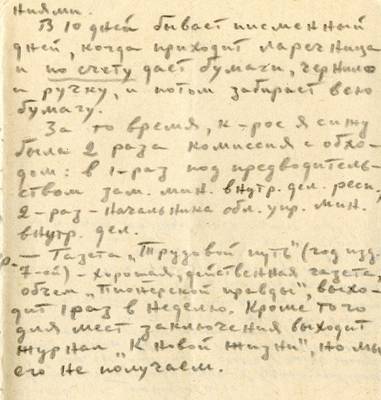 ниями.
В 10 дней бывает писменный
дней, когда приходит ларечница
и по счету дает бумаги, чернило
и ручку, и потом забирает всю
бумагу.
За то время, к-рое я сижу
была 2 раза комиссия с обхо-
дом: в 1-раз под предводитель-
ством зам. мин. внутр. дел. респ.,
2-раз - Начальника обл. упр. мин.
внутр. дел.
— Газета „Трудовой путь" (год изд.
7-ой) - хорошая, действенная газета,
объем „Пионерской правды", выхо-
дит 1 раз в неделю. Кроме того
для мест заключения выходит
журнал „К новой жизни", но мы
его не получаем.